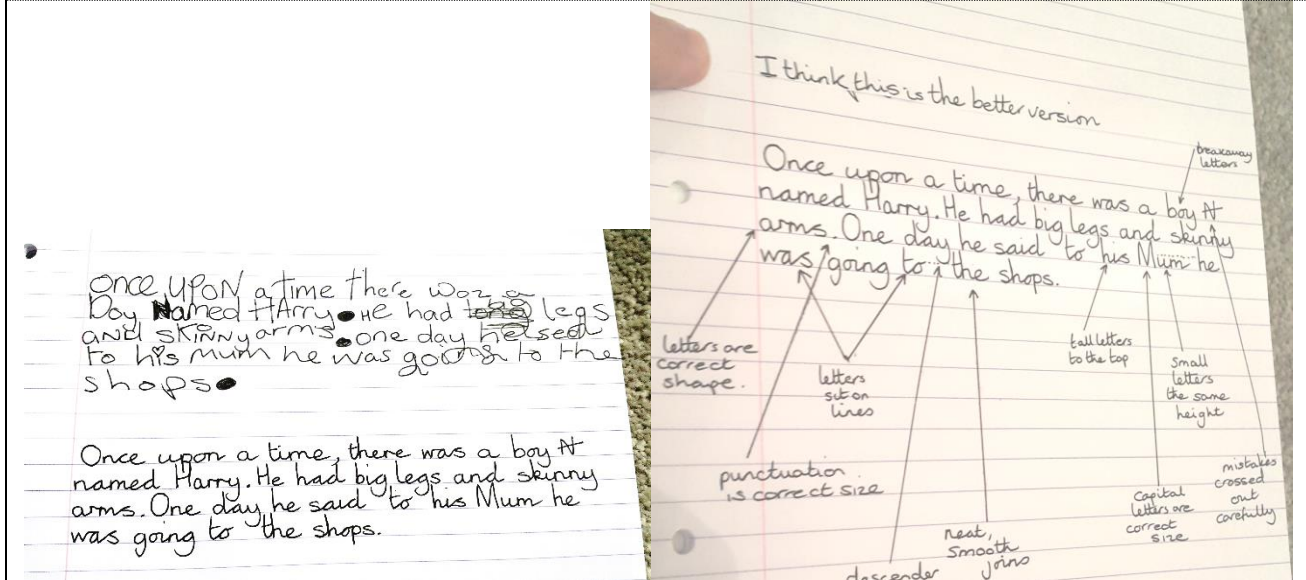 once UPON a time there woz a
boy Named HArry. He had legs
and SKiNNy arms. one day he sed
to his mum he was going to the
shops.
Once upon a time, there was a boy N
named Harry. He had big legs and skinny
arms. One day he said to his Mum he
was going to the shops.
I think this is the better version
Once upon a time, there was a boy N
named Harry. He had big legs and skinny
arms. One day he said to his Mum he
was going to the shops.
breakaway
letters
letters are
correct
shape.
letters
sit on
lines
tall letters
to the top
small
letters
the same
height
punctuation
is correct size
descender
neat,
smooth
joins
capital
letters are
correct
size
mistakes
crossed
out
carefully